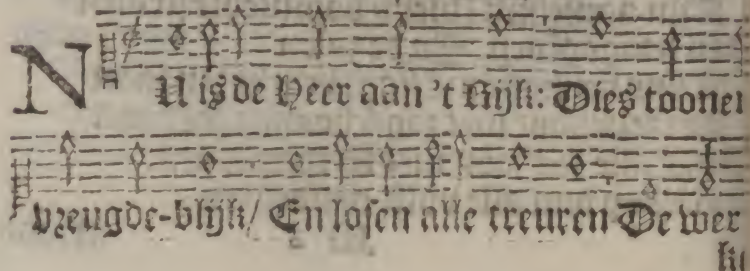 NU is de Heer aan 't Rijk: Dies toonen
vreugde-blijk/ En losen alle treuren De wer